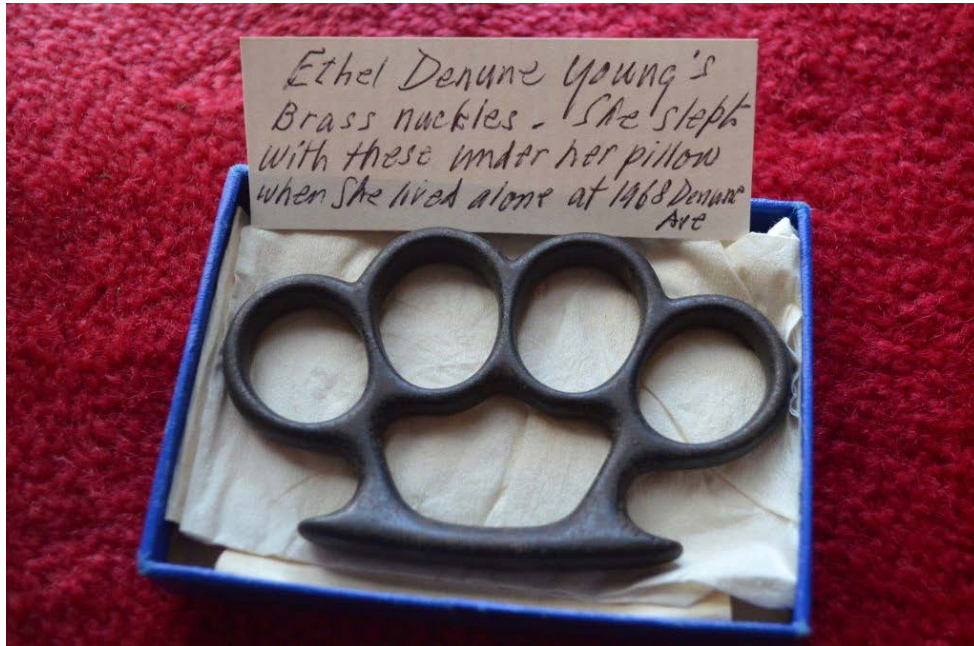 Ethel Denune Young's
Brass nuckles. She slept
with these under her pillow
when She lived alone at 1968 Denune
Ave